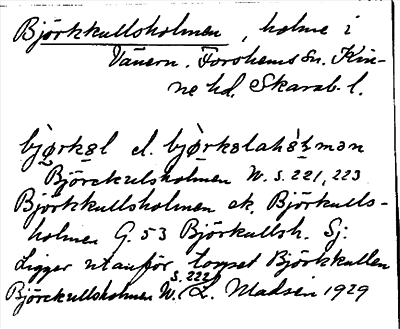 Björkkullsholmen, holme i
Vänern. Forshems sn. Kin-
ne hd. Skarab. l.
bjọrkəl el. bjọrkəlahɔ́lmən
Björckulsholmen W. s. 221, 223
Björkkullsholmen ek. Björkulls-
holmen G. 53 Björkullsh. Sj:
Ligger utanför torpet Björkkullen
Björckullsholmen W. s. 222 L. Madsén 1929